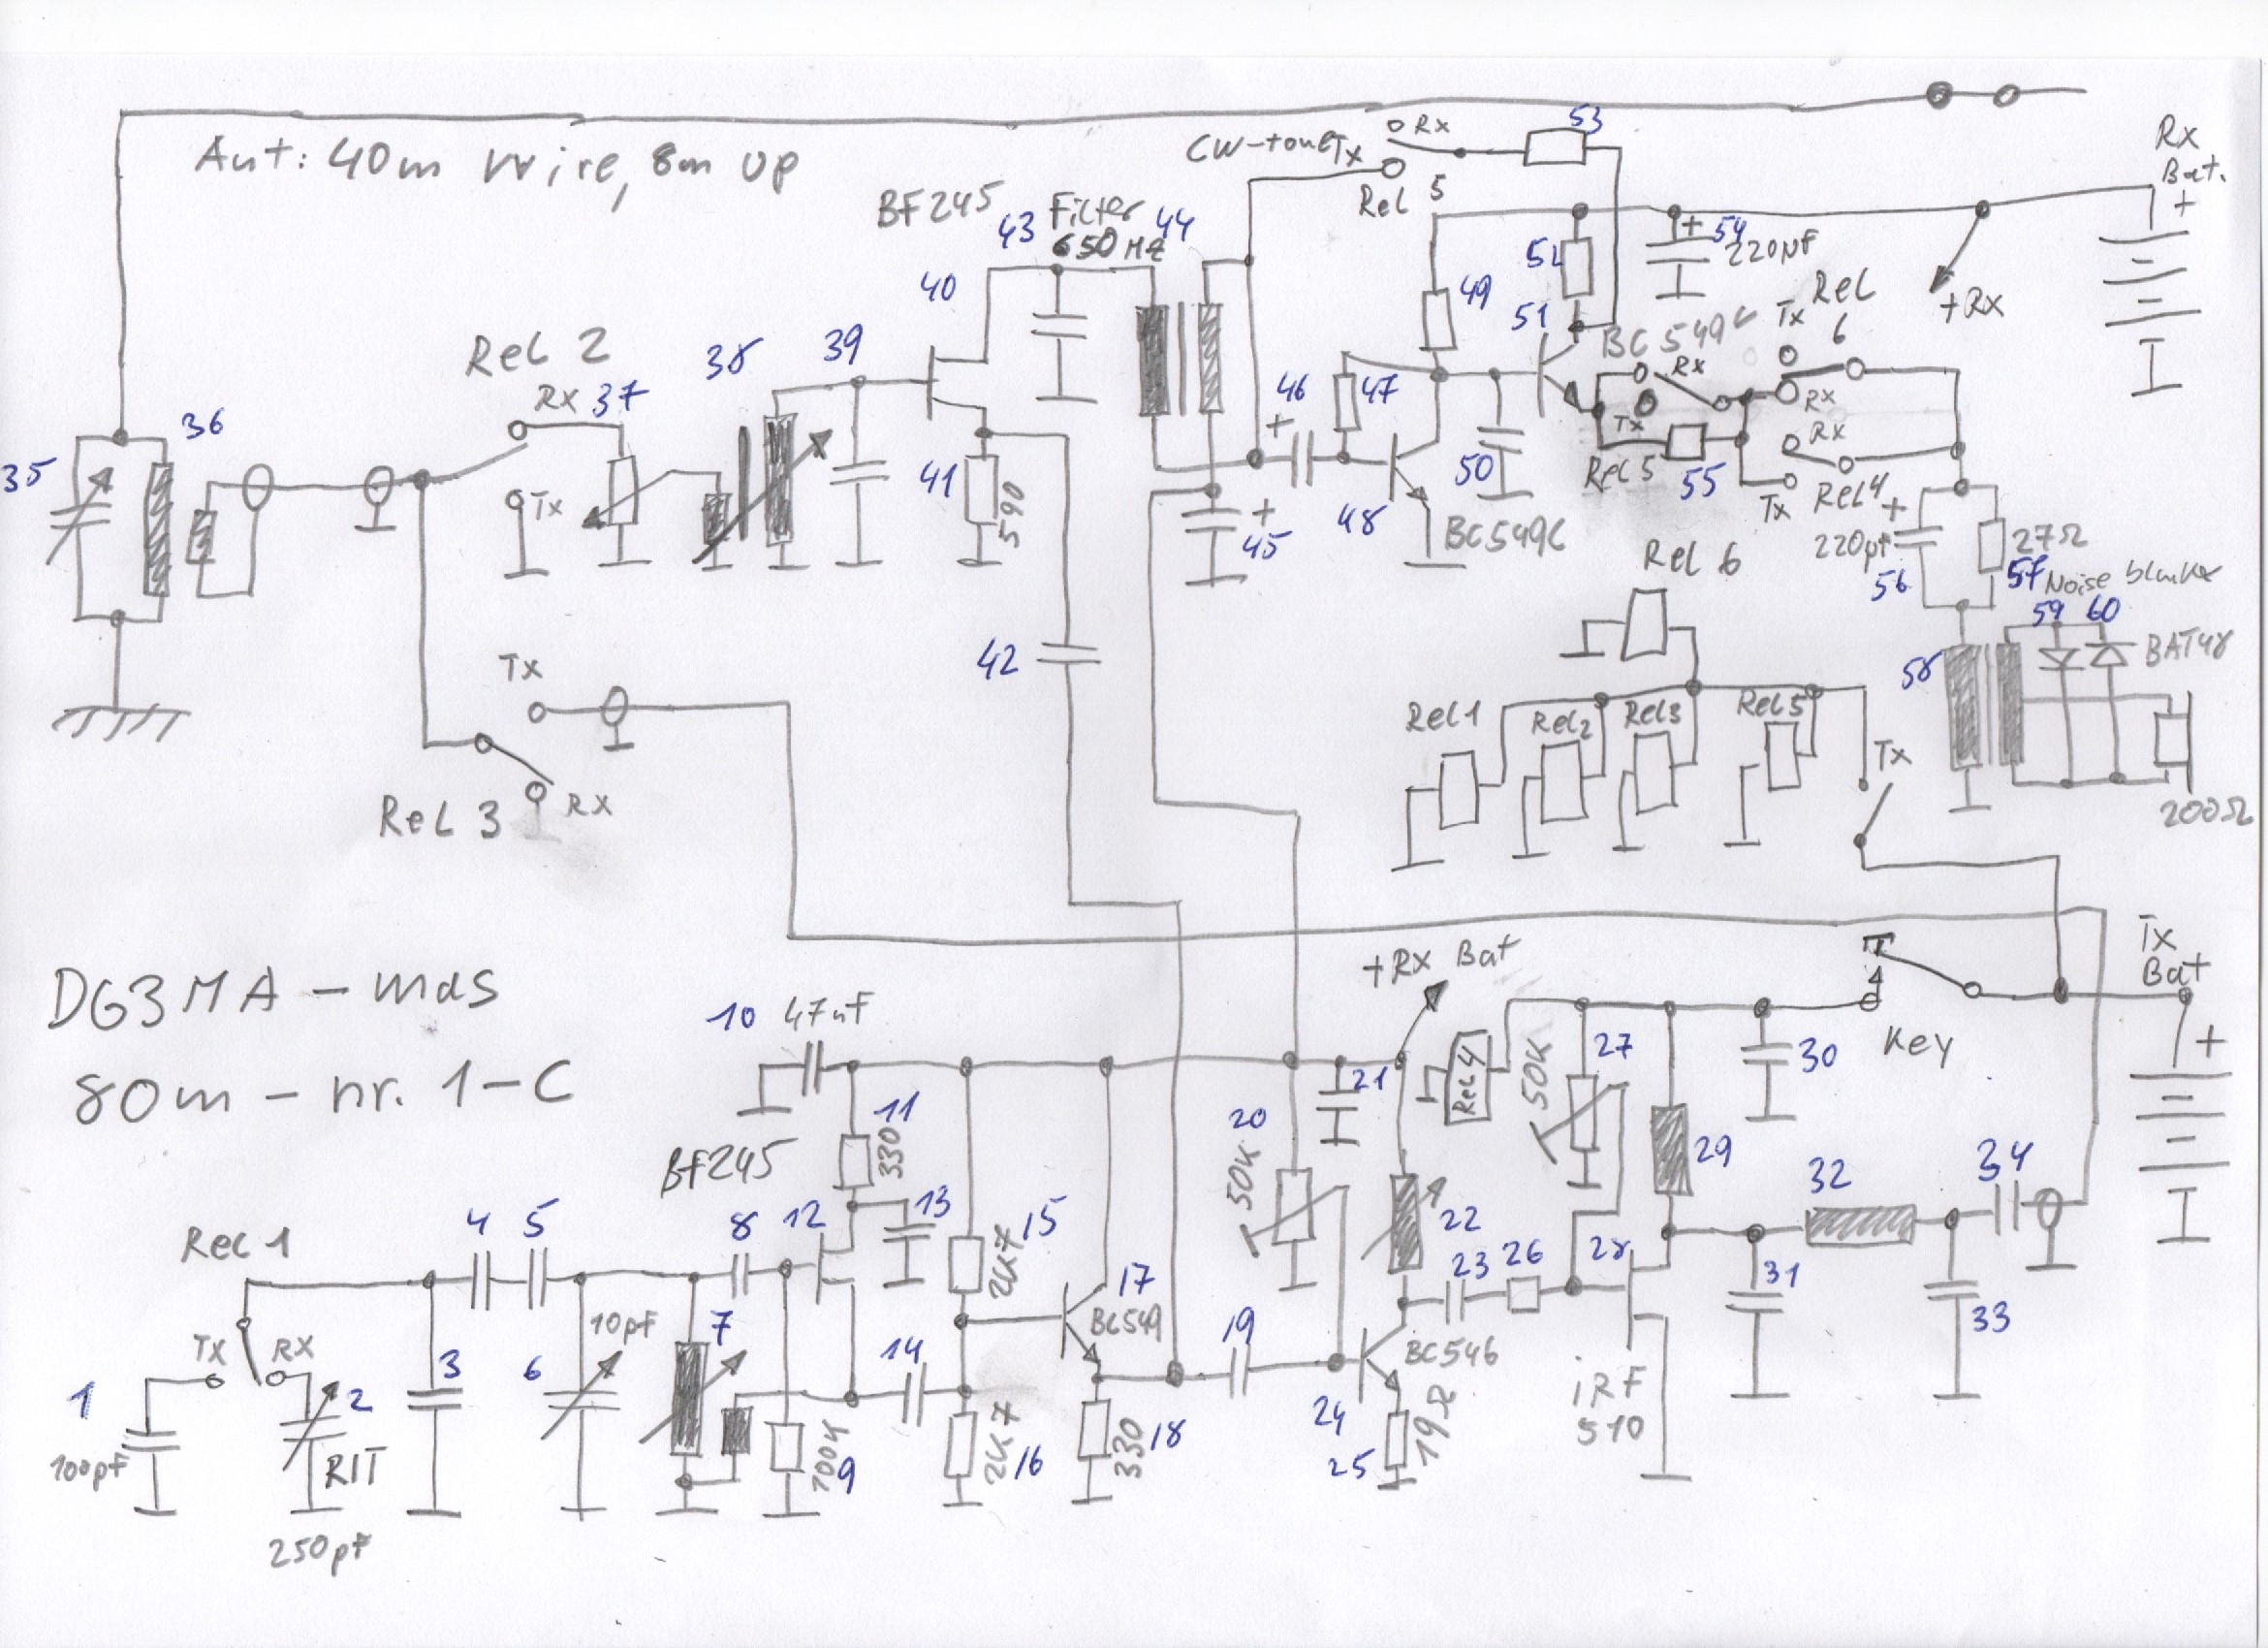 Ant: 40m wire, 8m up
CW-tone Tx
Rx
53
Rel 5
Rx
Bat.
+
BF245
43
Filter
650 Hz
44
40
52
+
54
220µF
Rel
6
Tx
+Rx
49
51
BC549C
Rel 2
Rx
37
38
39
46
+
47
Rx
Tx
Rx
Rx
36
35
Tx
41
590
+
45
48
50
BC549C
Rel 5
55
Tx
Rel 4
+
220µF
56
27Ω
57
Noise blanker
59
60
BAT48
Rel 6
42
58
Tx
Rel 1
Rel 2
Rel 3
Rel 5
Tx
200Ω
Rel 3
Rx
DG3MA - mas
80m - nr. 1-C
+Rx Bat
Tx
Bat
+
Key
10
47nF
11
330
21
20
50K
Rel 4
50K
27
30
29
BF245
8
12
13
15
2K7
17
BC549
22
23
26
28
32
34
Rel 1
4
5
10pF
7
14
19
BC546
31
33
TX
RX
1
100pF
2
RIT
250pF
3
6
100K
9
2K7
16
330
18
24
25
19Ω
iRF
510